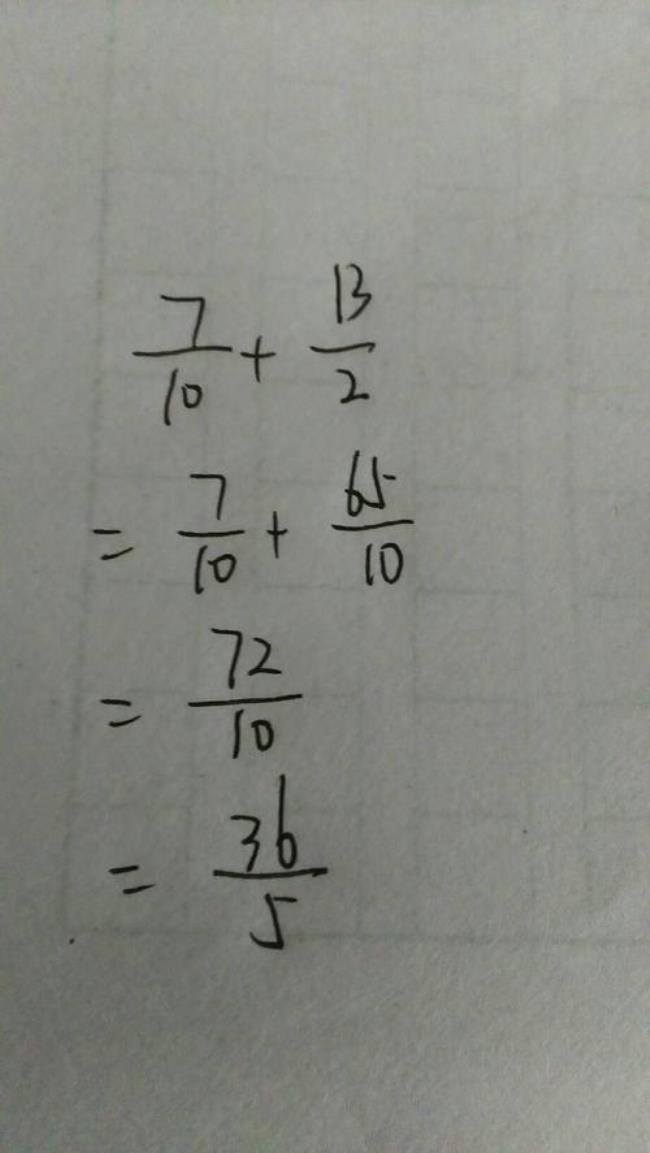 7/10 + 13/2
= 7/10 + 65/10
= 72/10
= 36/5